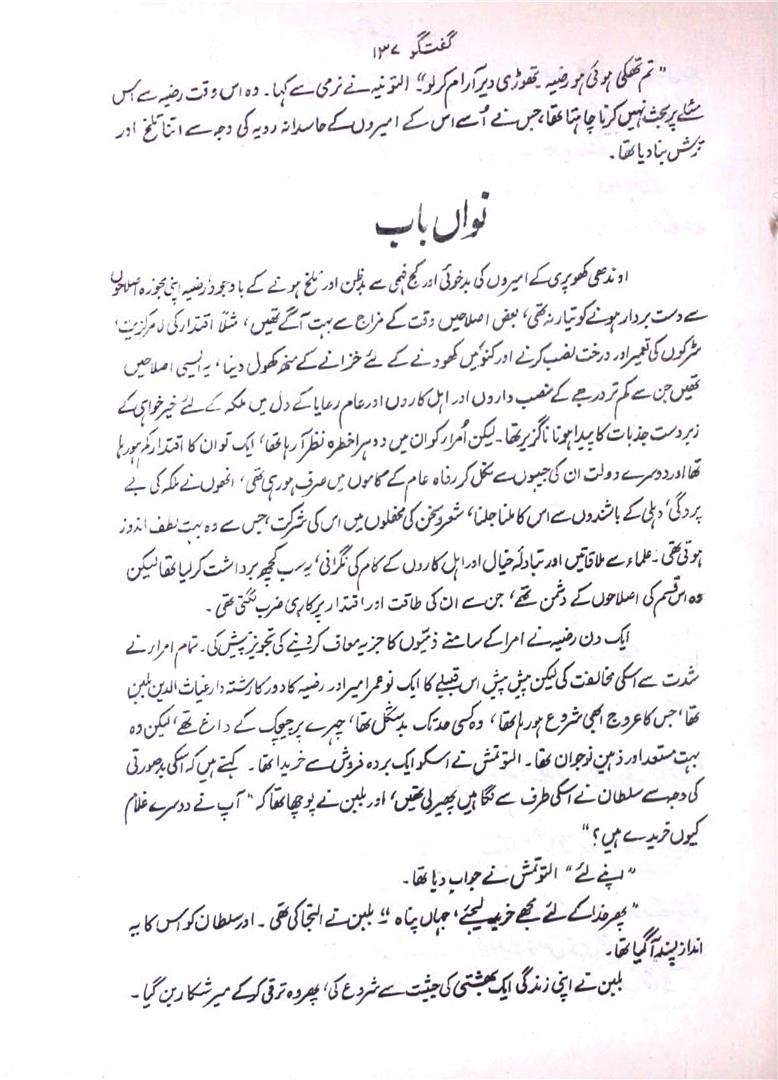 گفتگو ۱۳۷
"تم تھکی ہوئی ہو رضیہ تھوڑی دیر آرام کر لو۔" التونیہ نے نرمی سے کہا۔ وہ اس وقت رضیہ سے اس
مسئلے پر بحث نہیں کرنا چاہتا تھا، جس نے اُسے اس کے امیروں کے حاسدانہ رویہ کی وجہ سے اتنا تلخ اور
ترش بنا دیا تھا۔
نواں باب
اوندھی کھوپری کے امیروں کی بدخوئی اور کج فہمی سے بدظن اور تلخ ہونے کے باوجود رضیہ اپنی مجوزہ اصلاحوں
سے دست بردار ہونے کو تیار نہ تھی، بعض اصلاحیں وقت کے مزاج سے بہت آگے تھیں، مثلاً اقتدار کی لامرکزیت،
سڑکوں کی تعمیر اور درخت نصب کرنے اور کنوئیں کھودنے کے لئے خزانے کے منھ کھول دینا، یہ ایسی اصلاحیں
تھیں جن سے کم تر درجے کے منصب داروں اور اہل کاروں اور عام رعایا کے دل میں ملکہ کے لئے خیر خواہی کے
زبردست جذبات کا پیدا ہونا ناگزیر تھا۔ لیکن اُمراء کو ان میں دوہرا خطرہ نظر آ رہا تھا، ایک تو ان کا اقتدار کم ہو رہا
تھا اور دوسرے دولت ان کی جیبوں سے نکل کر رفاہ عام کے کاموں میں صرف ہو رہی تھی، انھوں نے ملکہ کی بے
پردگی، دہلی کے باشندوں سے اس کا ملنا جلنا، شعر و سخن کی محفلوں میں اس کی شرکت، جس سے وہ بہت لطف اندوز
ہوتی تھی۔ علماء سے ملاقاتیں اور تبادلۂ خیال اور اہل کاروں کے کام کی نگرانی، یہ سب کچھ برداشت کر لیا تھا لیکن
وہ اس قسم کی اصلاحوں کے دشمن تھے، جن سے ان کی طاقت اور اقتدار پر کاری ضرب لگتی تھی۔
ایک دن رضیہ نے امرا کے سامنے ذمّیوں کا جزیہ معاف کر دینے کی تجویز پیش کی۔ تمام امراء نے
شدت سے اسکی مخالفت کی لیکن پیش پیش اس قبیلے کا ایک نو عمر امیر اور رضیہ کا دور کا رشتہ دار غیاث الدین بلبن
تھا، جس کا عروج ابھی شروع ہو رہا تھا، وہ کسی حد تک بد شکل تھا، چہرے پر چیچک کے داغ تھے، لیکن وہ
بہت مستعد اور ذہین نوجوان تھا۔ التوتمش نے اسکو ایک بردہ فروش سے خریدا تھا۔ کہتے ہیں کہ اسکی بدصورتی
کی وجہ سے سلطان نے اسکی طرف سے نگاہیں پھیر لی تھیں، اور بلبن نے پوچھا تھا کہ "آپ نے دوسرے غلام
کیوں خریدے ہیں؟"
"اپنے لئے" التوتمش نے جواب دیا تھا۔
"پھر خدا کے لئے مجھے خرید لیجئے، جہاں پناہ۔" بلبن نے التجا کی تھی۔ اور سلطان کو اس کا یہ
انداز پسند آ گیا تھا۔
بلبن نے اپنی زندگی ایک بھشتی کی حیثیت سے شروع کی، پھر وہ ترقی کر کے میر شکار بن گیا۔